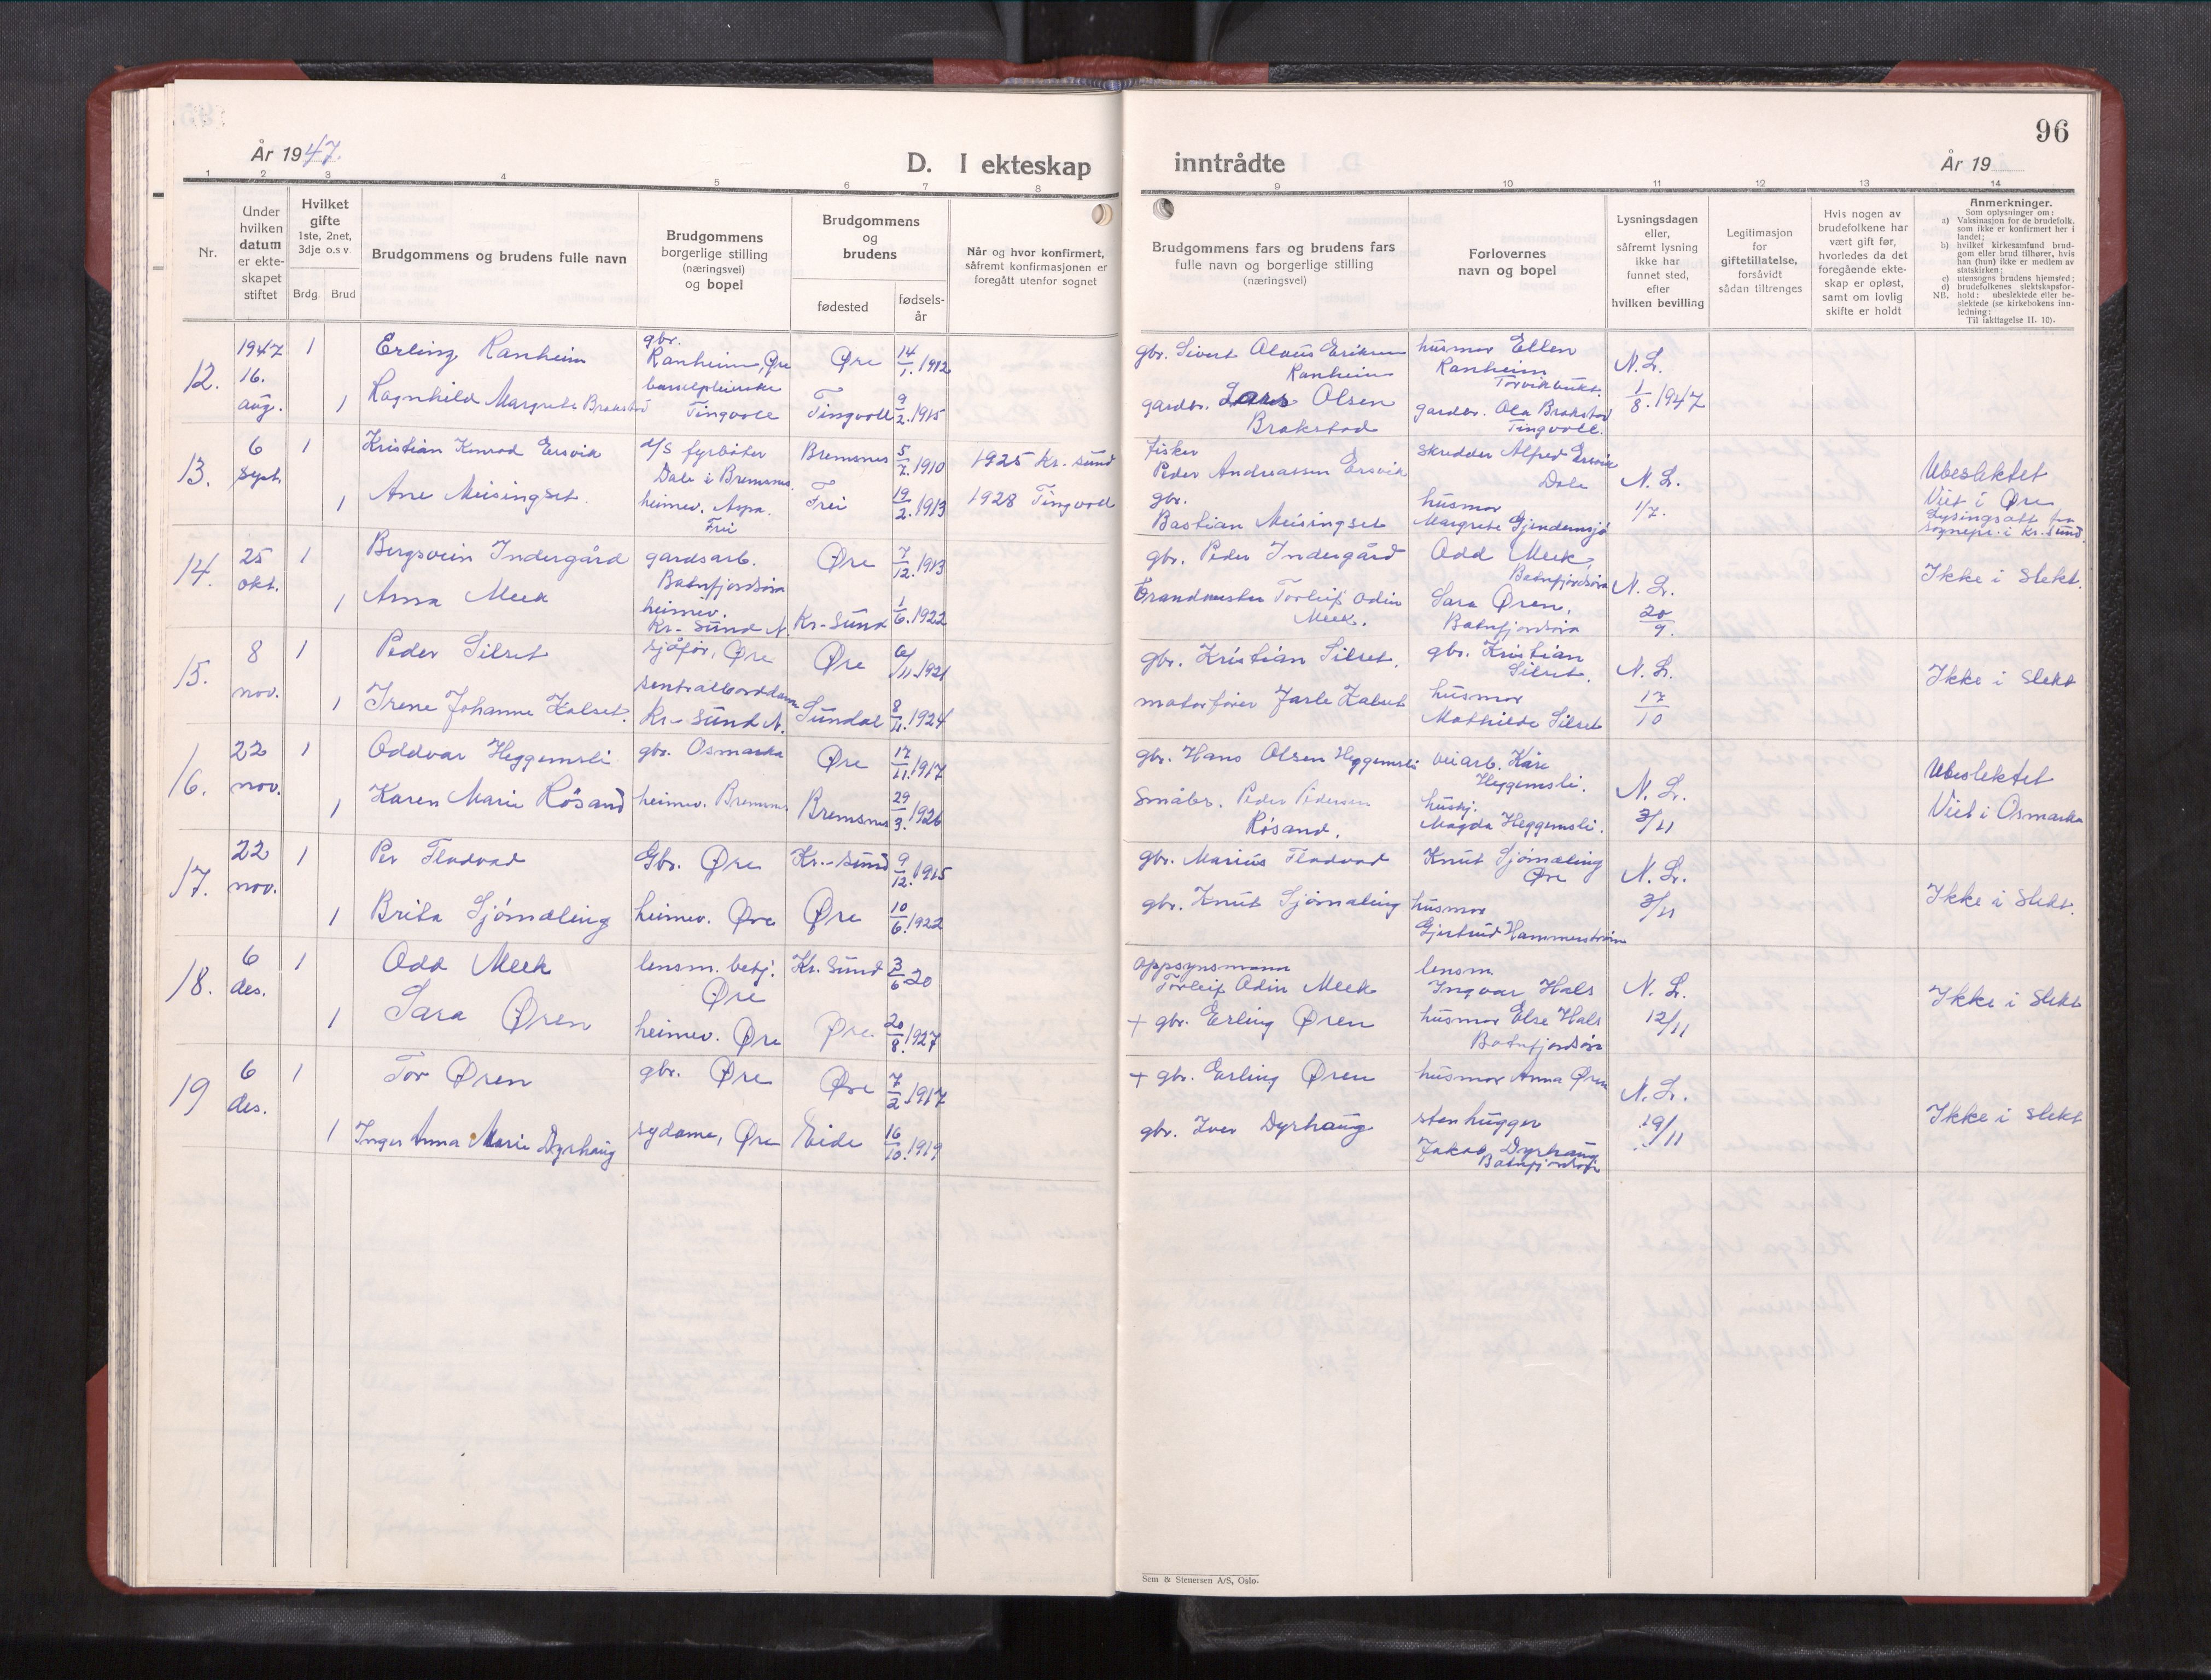 96
År 1947.
D. I ekteskap inntrådte
År 19
1 2 3 4 5 6 7 8 9 10 11 12 13 14
Nr.
Under
hvilken
datum
er ekte-
skapet
stiftet
Hvilket
gifte
1ste, 2net,
3dje o.s v
Brdg. Brud
Brudgommens og brudens fulle navn
Brudgommens
borgerlige stilling
(næringsvei)
og bopel
Brudgommens
og
brudens
fødested
fødsels-
år
Når og hvor konfirmert,
såfremt konfirmasjonen er
foregått utenfor sognet
Brudgommens fars og brudens fars
fulle navn og borgerlige stilling
(næringsvei)
Forlovernes
navn og bopel
Lysningsdagen
eller,
såfremt lysning
ikke har
funnet sted,
efter
hvilken bevilling
Legitimasjon
for
giftetillatelse,
forsåvidt
sådan tiltrenges
Hvis nogen av
brudefolkene har
vært gift før,
hvorledes da det
foregående ekte-
skap er opløst,
samt om lovlig
skifte er holdt
Anmerkninger.
Som oplysninger om:
a) Vaksinasjon for de brudefolk,
som ikke er konfirmert her i
landet;
b) hvilket kirkesamfund brud-
gom eller brud tilhører, hvis
han (hun) ikke er medlem av
statskirken;
c) utensogns brudens hjemsted;
d) brudefolkenes slektskapsfor-
hold: ubeslektede eller be-
NB. slektede (se kirkebokens inn-
ledning;
Til iakttagelse II. 10).
12.
1947
16.
aug.
1
Erling Ranheim
gbr.
Ranheim, Øre
Øre
14/1. 1912
gbr. Sivert Olaus Eriksen
Ranheim
husmor Ellen
Ranheim
Torvikbukt.
N. L.
1/8. 1947
1
Ragnhild Margrete Brakstad
Tingvoll
Tingvoll
9/2. 1915
gardbr. Lars Olsen
Brakstad
gardbr. Ola Brakstad
Tingvoll.
13.
6
sept.
1
Kristian Konrad Ersvik
d/s fyrbøter
Dale i Bremsnes.
Bremsnes
5/7. 1910
1925 Kr. sund
fisker
Peder Andreassen Ersvik
skredder Alfred Ersvik
Dale
N. L.
1/7.
Ubeslektet
Viet i Øre
Lysingsatt fra
sognepr. i Kr. sund.
1
Ane Meisingset.
heimev. Aspa.
Frei
Frei
19/2. 1913
1928 Tingvoll
gbr.
Bastian Meisingset
husmor
Margrete Gjendemsjø
14.
25
okt.
1
Bergsvein Indergård
gardsarb.
Batnfjordsøra
Øre
7/12. 1913
gbr. Peder Indergård
Odd Meek,
Batnfjordsøra
N. L.
20/9.
Ikke i slekt.
1
Anna Meek
heimev.
Kr-sund N.
Kr-sund
1/6. 1922
Brandmester Torleif Odin
Meek.
Sara Øren,
Batnfjordsøra
15.
8
nov.
1
Peder Silset
sjåfør, Øre
Øre
6/11. 1921
gbr. Kristian Silset.
gbr. Kristian
Silset.
N. L.
17/10
Ikke i slekt
1
Irene Johanne Kalset.
sentralborddame
Kr-sund N.
Sundal
8/11. 1924
motorfører Jarle Kalset
husmor
Mathilde Silset
16.
22
nov.
1
Oddvar Heggemsli
gbr. Osmarka
Øre
17/11. 1917
gbr. Hans Olsen Heggemsli
veiarb. Kåre
Heggemsli.
N. L.
3/11
Ubeslektet
Viet i Osmarka
1
Karen Marie Røsand
heimev. Bremsnes
Bremsnes
29/3. 1926
småbr. Peder Pedersen
Røsand.
hushj.
Magda Heggemsli.
17.
22
nov.
1
Per Fladvad
Gbr. Øre
Kr.-sund
9/12. 1915
gbr. Marius Fladvad
Knut Sjømæling
Øre
N. L.
3/11
Ikke i slekt.
1
Brita Sjømæling
heimev. Øre
Øre
10/6. 1922
gbr. Knut Sjømæling
husmor
Gjertrud Hammerstrøm
18.
6
des.
1
Odd Meek
lensm. betj.
Øre
Kr. sund
3/6 20
oppsynsmann
Torleif Odin Meek
lensm.
Ingvar Hals
N. L.
12/11
Ikke i slekt
1
Sara Øren
heimev. Øre
Øre
20/8. 1927
+ gbr. Erling Øren
husmor Else Hals
Batnfjordsøra
19
6
des.
1
Tor Øren
gbr. Øre
Øre
7/2. 1917
+ gbr. Erling Øren
husmor Anna Øren
N. L.
19/11
Ikke i slekt
1
Inger Anna Marie Dyrhaug
sydame, Øre
Eide
16/10. 1919
gbr. Iver Dyrhaug
stenhugger
Jakob Dyrhaug
Batnfjordsøra
Sem & Stenersen A/S, Oslo.